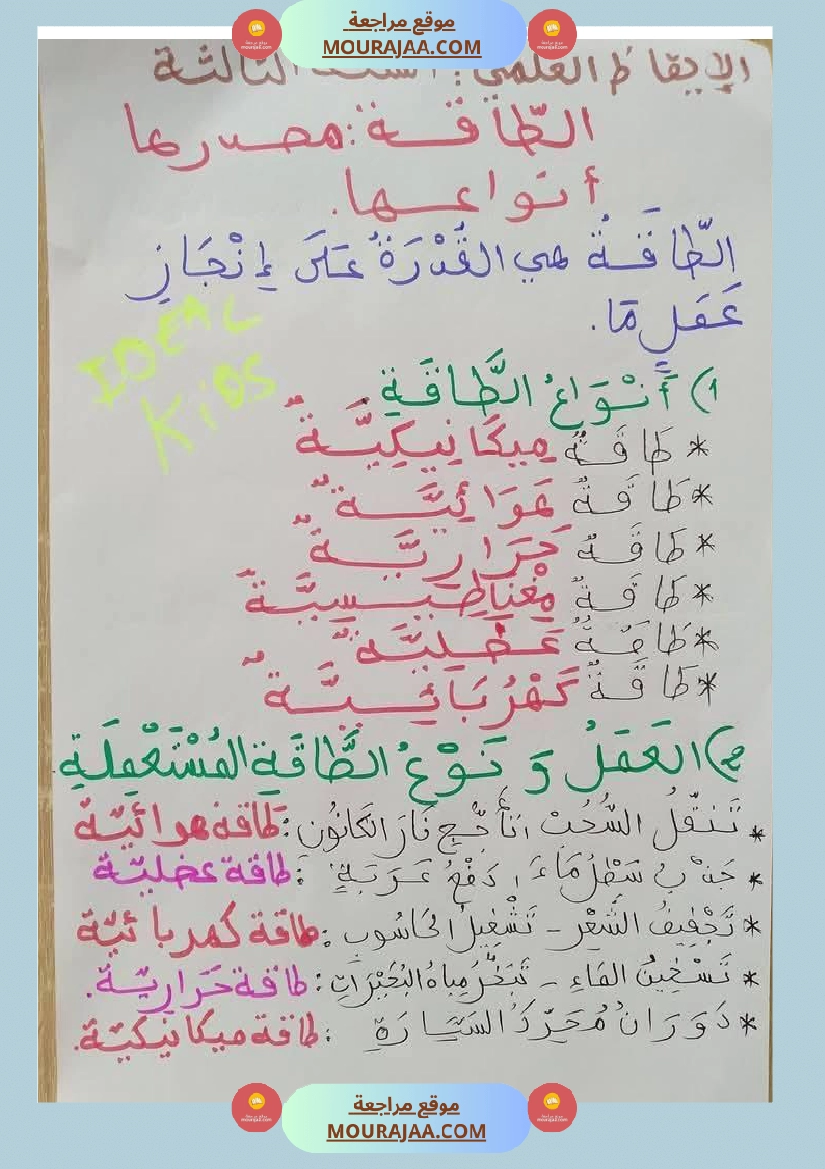 موقع مراجعة
MOURAJAA.COM
الإيقاظ العلمي: السنة الثالثة
الطّاقة: مصدرها
أنواعها.
الطّاقَةُ هي القُدْرَةُ عَلَى إِنْجَازِ
عَمَلٍ مَّا.
IDEAL
KiDS
1) أَنْوَاعُ الطَّاقَةِ
* طَاقَةٌ مِيكَانِيكِيَّةٌ
* طَاقَةٌ هَوَائِيَّةٌ
* طَاقَةٌ حَرَارِيَّةٌ
* طَاقَةٌ مِغْنَاطِيسِيَّةٌ
* طَاقَةٌ عَضَلِيَّةٌ
* طَاقَةٌ كَهْرُبَائِيَّةٌ
2) العَمَلُ وَ نَوْعُ الطَّاقَةِ المُسْتَعْمَلَةِ
* تَنَقُّلُ السُّحُبْ، تَأَجُّجِ نَارَ الكَانُون: طاقة هوائيّة
* جَذْبُ سَطْلُ مَاءَ، دَفْعُ عَرَبَةٍ: طاقة عضليّة
* تَجْفِيفُ الشَّعْرِ - تَشْغِيلُ الحَاسُوبِ: طاقة كهربائيّة
* تَسْخِينُ المَاءِ - تَبَخُّرُ مِيَاهُ البُحَيْرَاتِ: طاقة حَرَاريّة.
* دَوَرَانُ مُحَرِّكُ السَّيَّارَةِ: طاقة ميكانيكيّة.
موقع مراجعة
MOURAJAA.COM